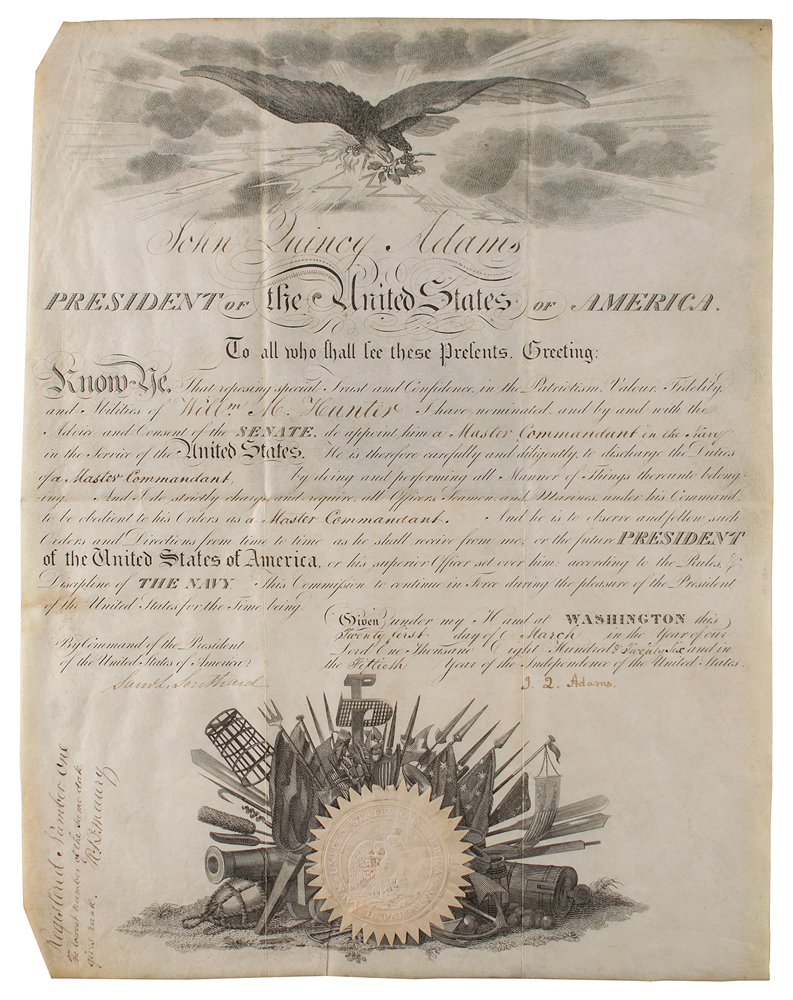 John Quincy Adams
PRESIDENT OF the United States OF AMERICA.
To all who shall see these Presents, Greeting:
Know Ye, That reposing special Trust and Confidence, in the Patriotism, Valour, Fidelity,
and Abilities of Willm M. Hunter I have nominated, and by and with the
Advice and Consent of the SENATE, do appoint him a Master Commandant in the Navy
in the Service of the United States. He is therefore carefully and diligently, to discharge the Duties
of a Master Commandant, by doing and performing all Manner of Things thereunto belong-
ing. And I do strictly charge and require, all Officers, Seamen, and Marines, under his Command,
to be obedient to his Orders as a Master Commandant. And he is to observe and follow such
Orders and Directions from time to time as he shall receive from me, or the future PRESIDENT
of the United States of America, or his superior Officer set over him, according to the Rules, &
Discipline of THE NAVY. This Commission to continue in Force during the pleasure of the President
of the United States for the Time being.
Given under my Hand at WASHINGTON this
Twenty first day of March in the Year of our
Lord One Thousand Eight Hundred & Twenty Six and in
the Fiftieth Year of the Independence of the United States.
By Command of the President
of the United States of America:
Saml L. Southard
J. Q. Adams.
Registered Number One
The lowest number of the same date
gives rank.